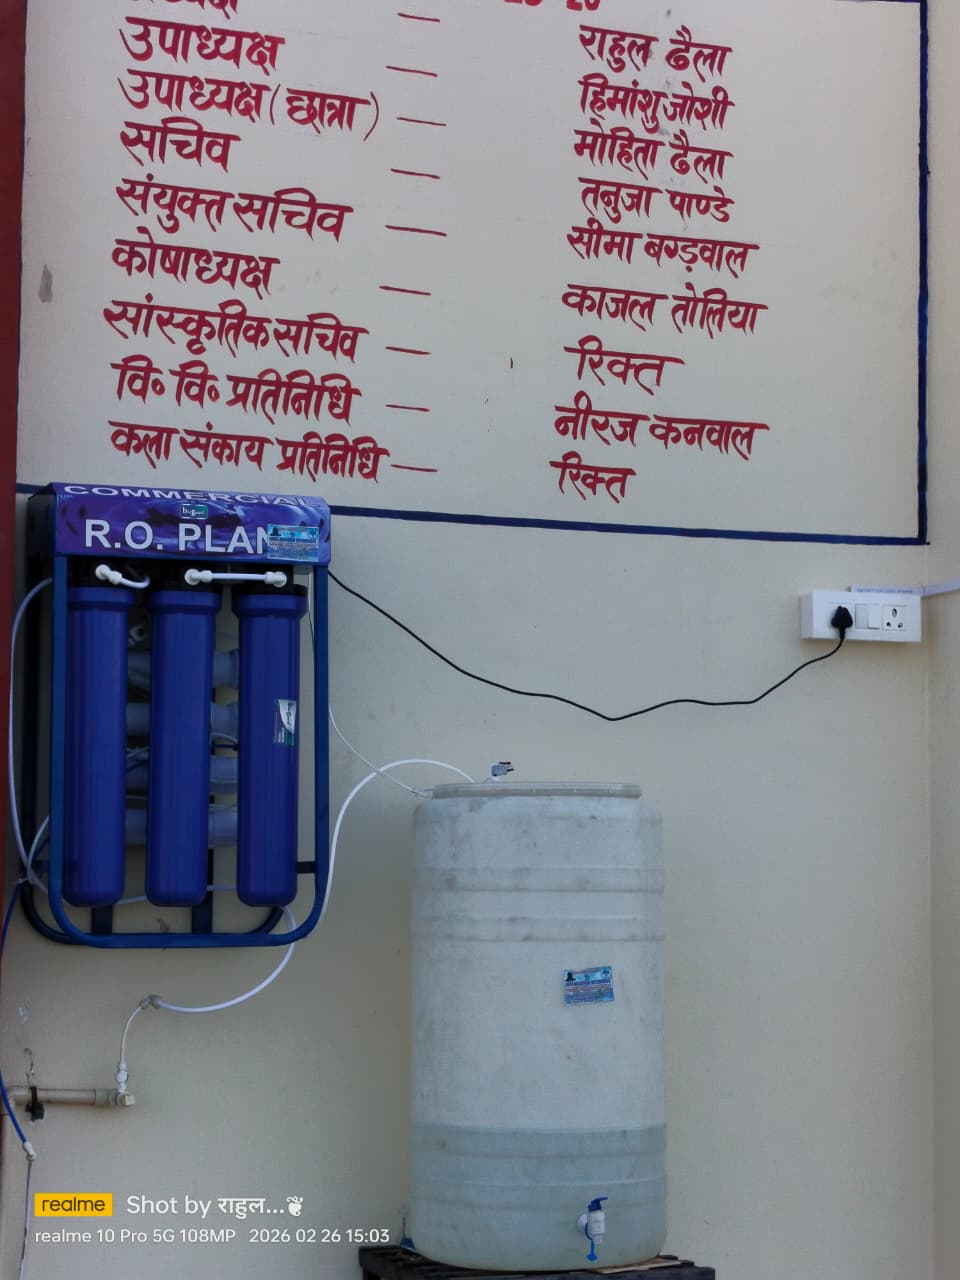 उपाध्यक्ष — राहुल ढैला
उपाध्यक्ष (छात्रा) — हिमांशु जोशी
सचिव — मोहिता ढैला
संयुक्त सचिव — तनुजा पाण्डे
कोषाध्यक्ष — सीमा बगड़वाल
सांस्कृतिक सचिव — काजल तोलिया
वि० वि० प्रतिनिधि — रिक्त
कला संकाय प्रतिनिधि — नीरज कनवाल
रिक्त
COMMERCIAL
R.O. PLAN
realme Shot by राहुल...
realme 10 Pro 5G 108MP 2026 02 26 15:03